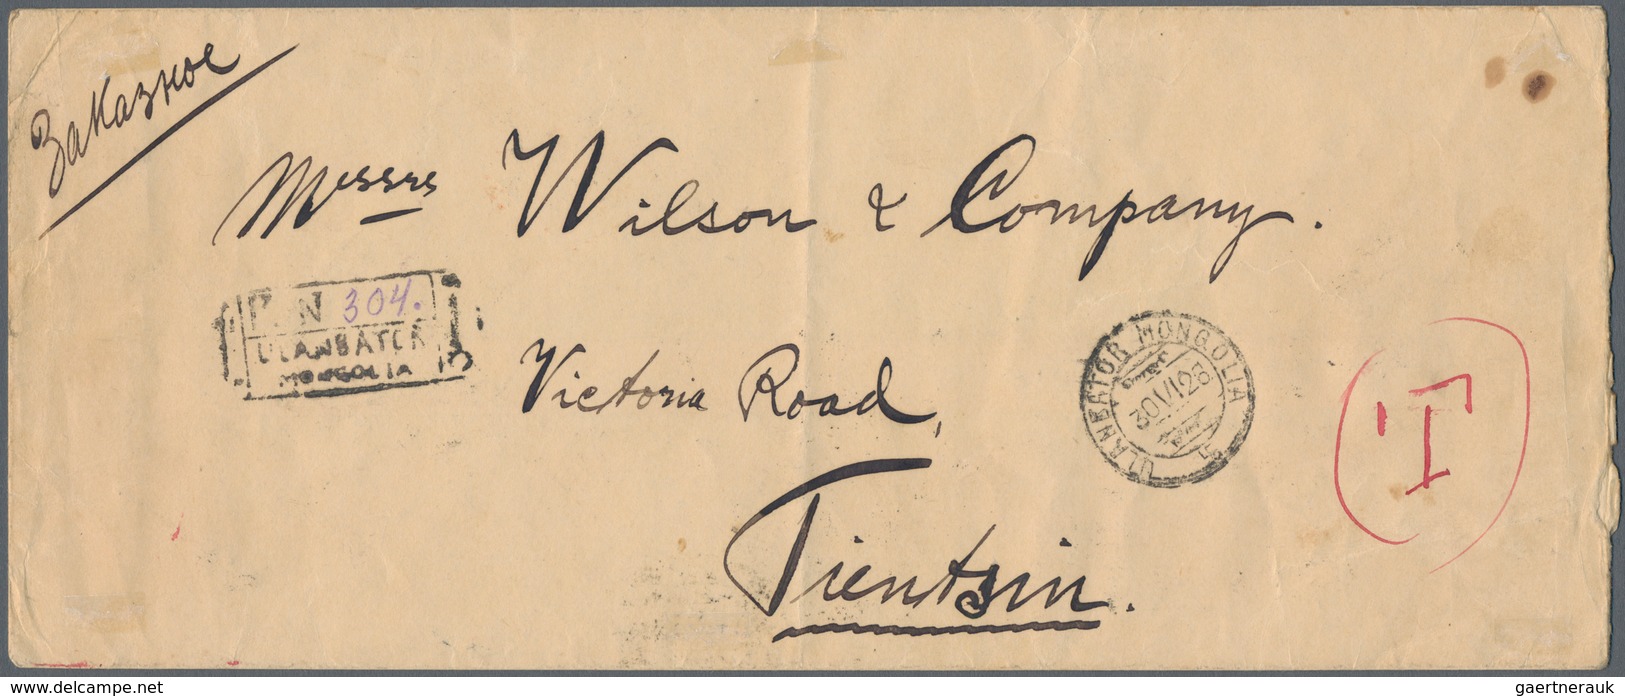 Заказное
Messrs Wilson & Company.
N 304.
ULANBATOR
MONGOLIA
Victoria Road,
ULANBATOR MONGOLIA
30 VI 28
T
Tientsin.
www.delcampe.net
gaertnerauk